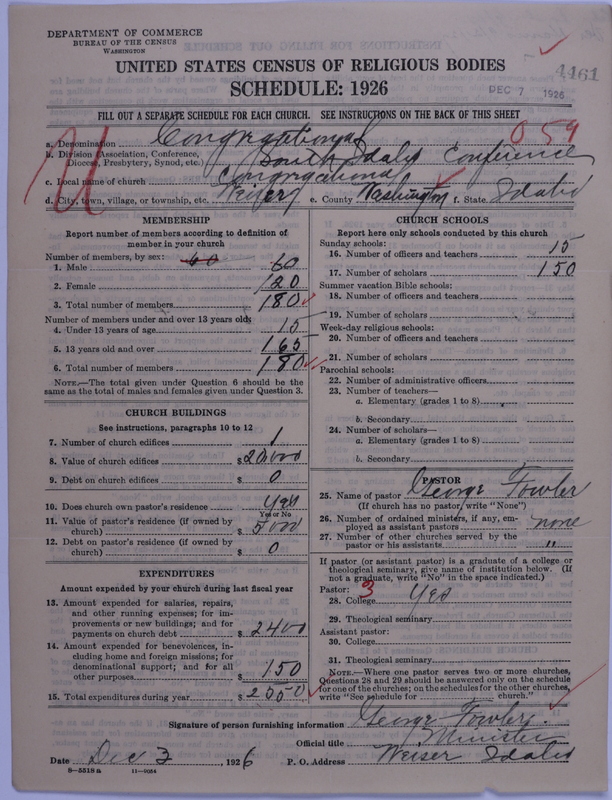 DEPARTMENT OF COMMERCE
BUREAU OF THE CENSUS
WASHINGTON
UNITED STATES CENSUS OF RELIGIOUS BODIES
SCHEDULE: 1926
4461
DEC 7 1926
FILL OUT A SEPARATE SCHEDULE FOR EACH CHURCH. SEE INSTRUCTIONS ON THE BACK OF THIS SHEET
059
a. Denomination Congregational
b. Division (Association, Conference, Diocese, Presbytery, Synod, etc.) South Idaho Conference
c. Local name of church Congregational
d. City, town, village, or township, etc. Weiser e. County Washington f. State Idaho
MEMBERSHIP
Report number of members according to definition of
member in your church
Number of members, by sex: 60
1. Male 60
2. Female 120
3. Total number of members 180
Number of members under and over 13 years old:
4. Under 13 years of age 15
5. 13 years old and over 165
6. Total number of members 180
NOTE.—The total given under Question 6 should be the
same as the total of males and females given under Question 3.
CHURCH BUILDINGS
See instructions, paragraphs 10 to 12
7. Number of church edifices 1
8. Value of church edifices $ 20,000
9. Debt on church edifices $ 0
10. Does church own pastor's residence? Yes
Yes or No
11. Value of pastor's residence (if owned by
church) $ 5000
12. Debt on pastor's residence (if owned by
church) $ 0
EXPENDITURES
Amount expended by your church during last fiscal year
13. Amount expended for salaries, repairs,
and other running expenses; for im-
provements or new buildings; and for
payments on church debt $ 2400
14. Amount expended for benevolences, in-
cluding home and foreign missions; for
denominational support; and for all
other purposes $ 150
15. Total expenditures during year $ 2550
CHURCH SCHOOLS
Report here only schools conducted by this church
Sunday schools:
16. Number of officers and teachers 15
17. Number of scholars 150
Summer vacation Bible schools:
18. Number of officers and teachers
19. Number of scholars
Week-day religious schools:
20. Number of officers and teachers
21. Number of scholars
Parochial schools:
22. Number of administrative officers
23. Number of teachers—
a. Elementary (grades 1 to 8)
b. Secondary
24. Number of scholars—
a. Elementary (grades 1 to 8)
b. Secondary
PASTOR
25. Name of pastor George Fowler
(If church has no pastor, write "None")
26. Number of ordained ministers, if any, em-
ployed as assistant pastors none
27. Number of other churches served by the
pastor or his assistants "
If pastor (or assistant pastor) is a graduate of a college or
theological seminary, give name of institution below. (If
not a graduate, write "No" in the space indicated.)
Pastor: 3
28. College Yes
29. Theological seminary
Assistant pastor:
30. College
31. Theological seminary
NOTE.—Where one pastor serves two or more churches,
Questions 28 and 29 should be answered only on the schedule
for one of the churches; on the schedules for the other churches,
write "See schedule for church."
Signature of person furnishing information George Fowler
Official title Minister
Date Dec 3, 1926 P. O. Address Weiser Idaho
8—5518 a 11—9054